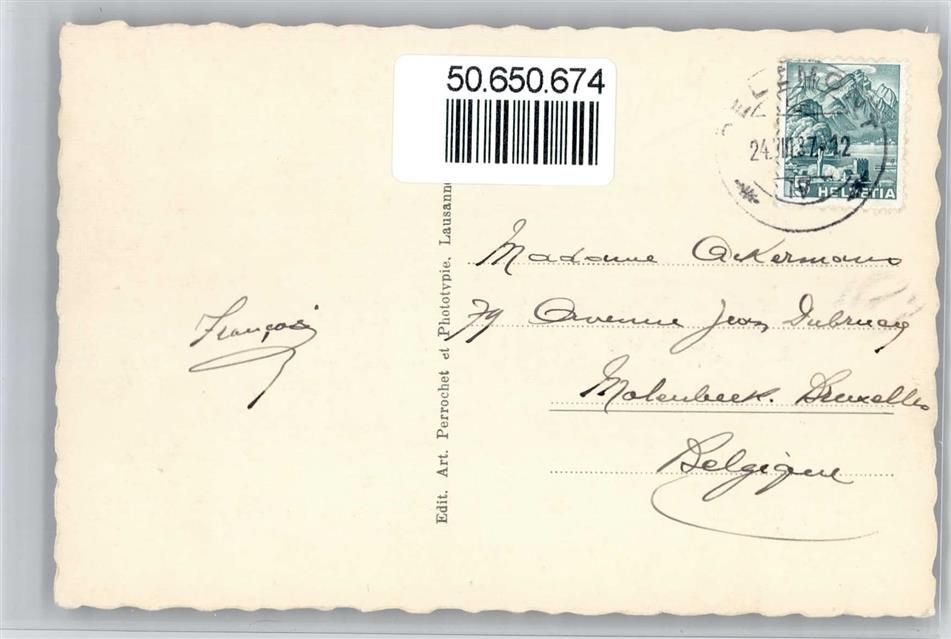 50.650.674
DELÉMONT
24. 37-12
5 HELVETIA
Edit. Art. Perrochet et Phototypie, Lausanne
Madame Ackermans
79 Avenue Jean Dubrucq
Molenbeek. Bruxelles
Belgique
François